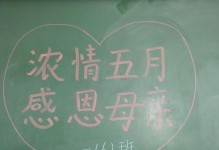 浓情五月
感恩母亲
一(6)班